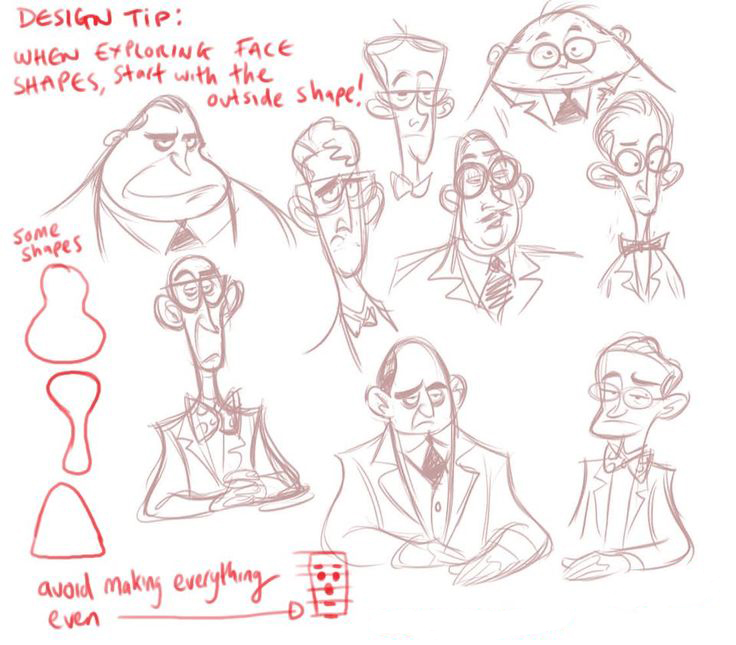 DESIGN TIP:
WHEN EXPLORING FACE
SHAPES, START with the
outside shape!
some
shapes
avoid making everything
even